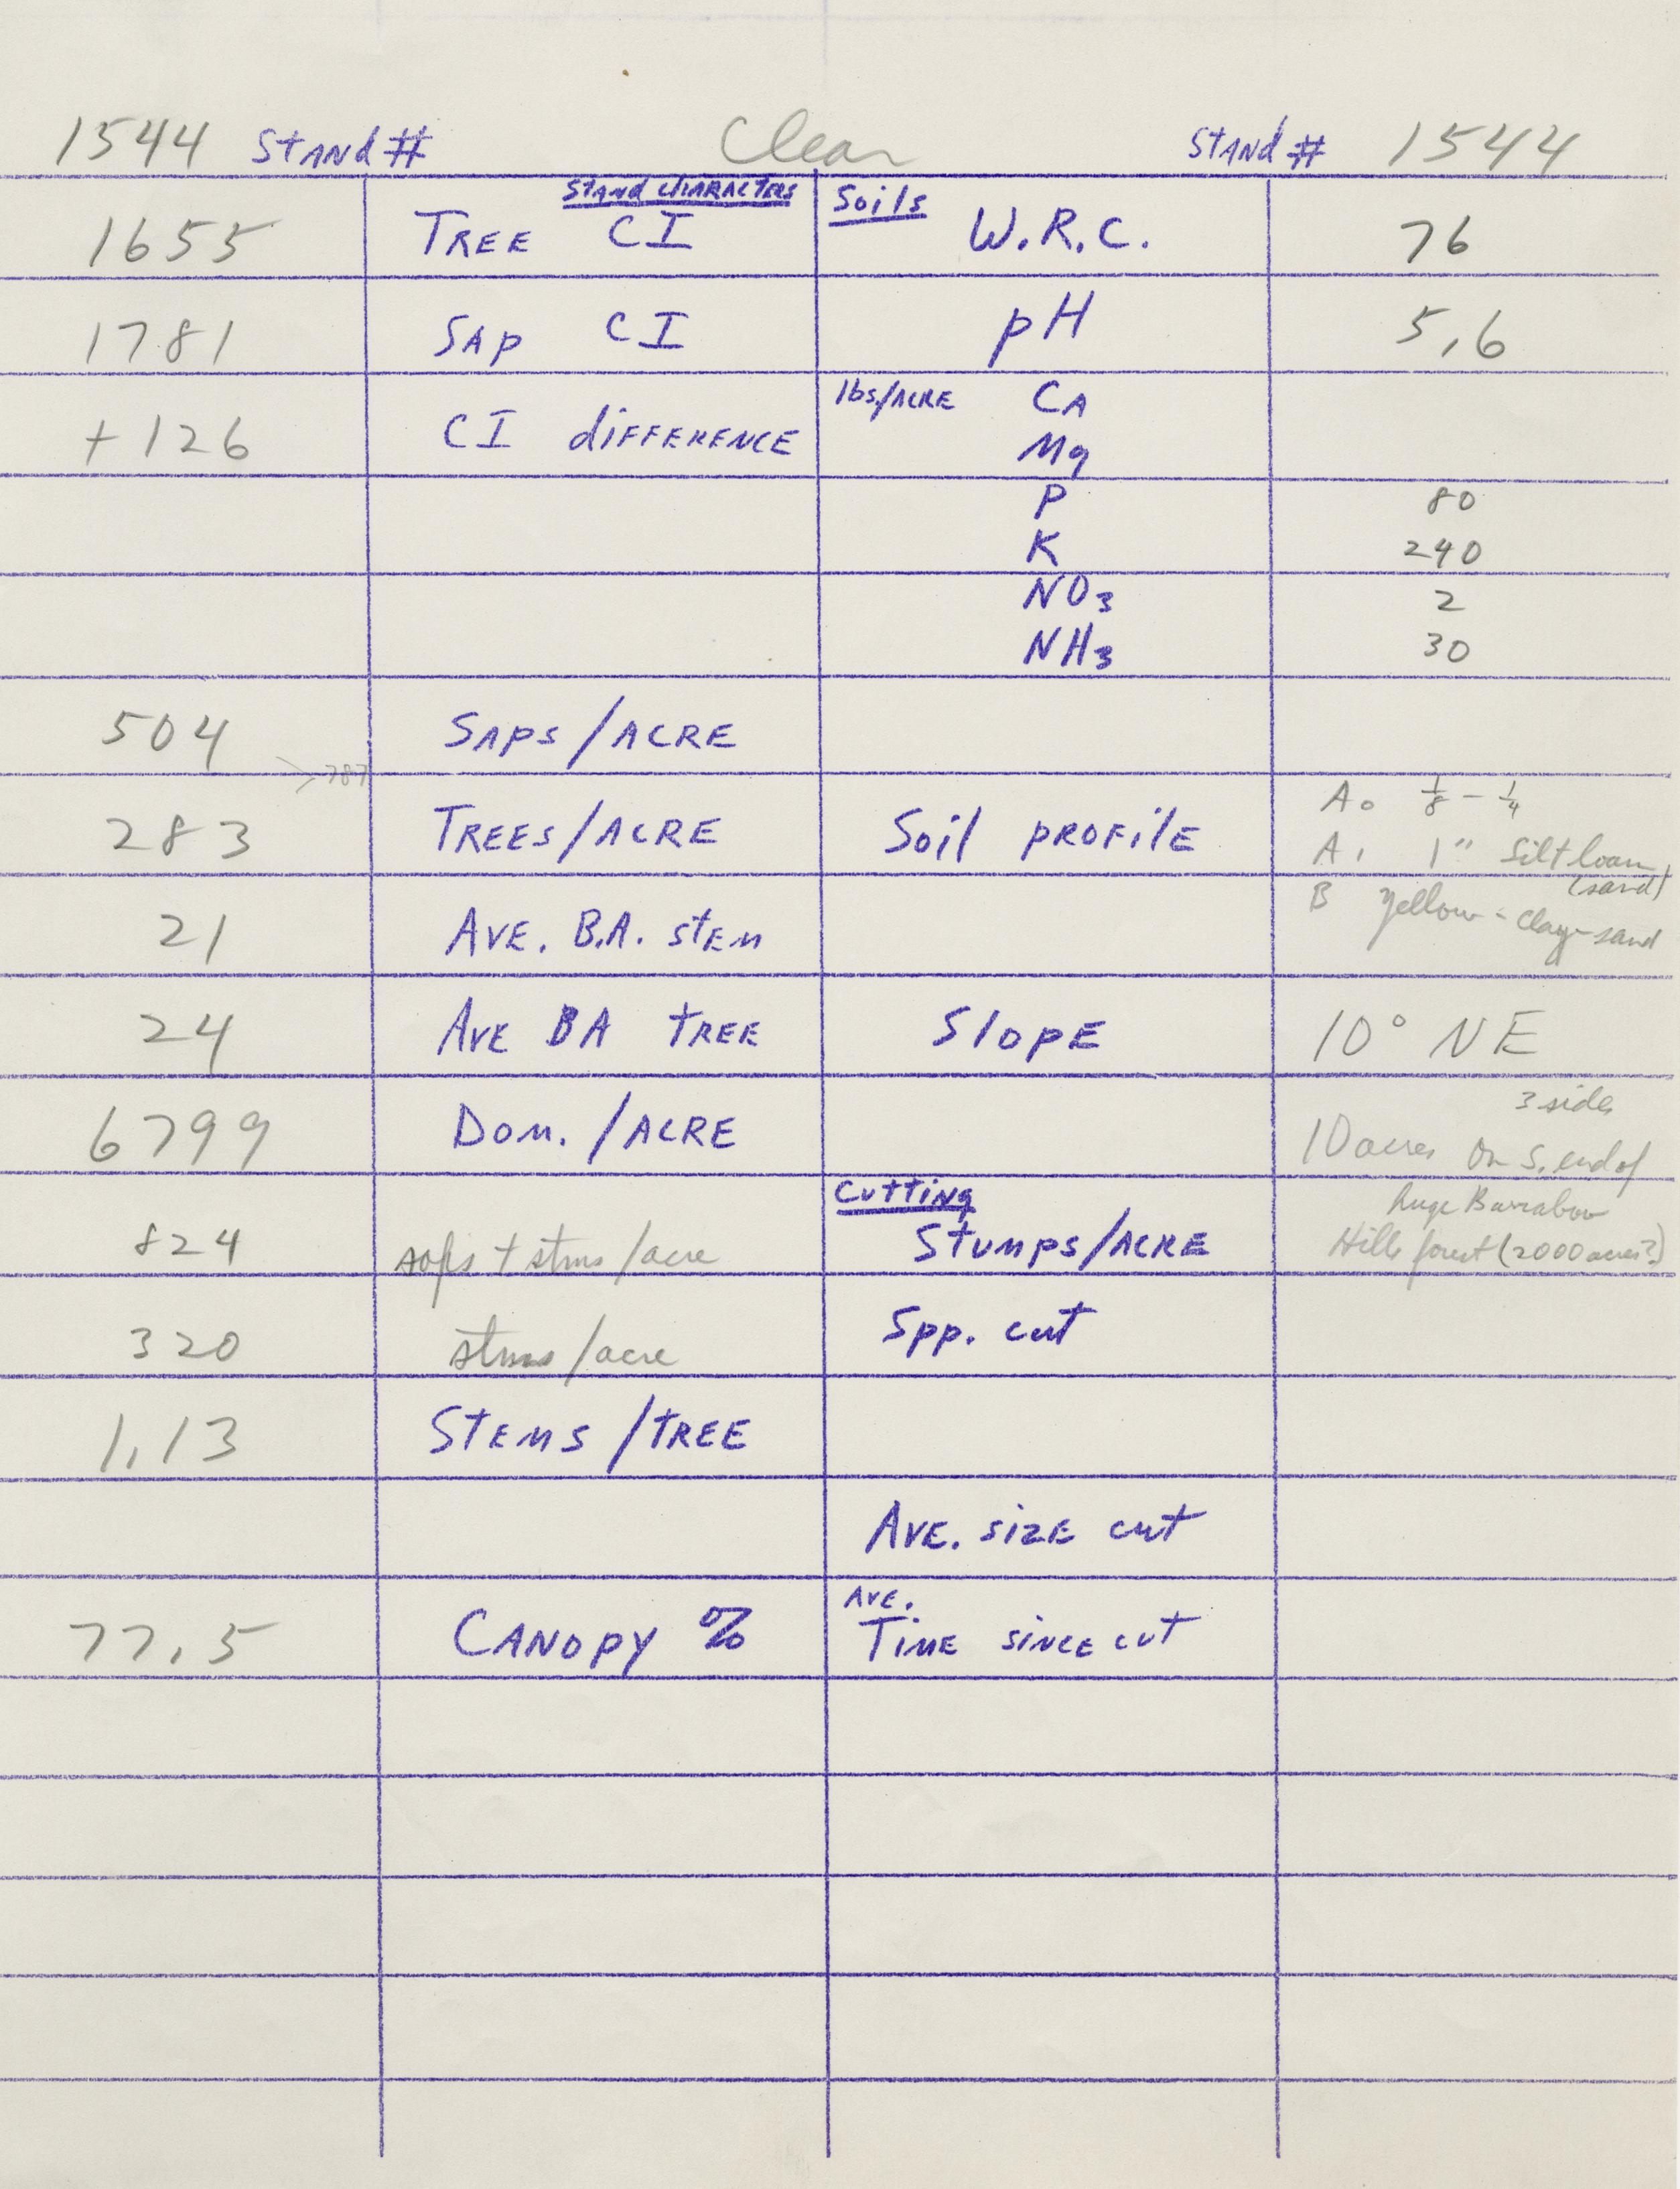 1544 Stand # Clear Stand # 1544
Stand Characters Soils
1655 Tree CI W.R.C. 76
1781 Sap CI pH 5.6
+126 CI difference lbs./Acre Ca
Mg
P 80
K 240
NO3 2
NH3 30
504 Saps/Acre
>787
283 Trees/Acre Soil profile A0 1/8 - 1/4
A1 1" Silt loam
(sand)
21 Ave. B.A. stem B yellow - clay - sand
24 Ave BA tree Slope 10° NE
3 sides
6799 Dom./Acre 10 acres on S. end of
Cutting huge Barraboo
824 saps + stms/acre Stumps/Acre Hills forest (2000 acres?)
320 stms/acre Spp. cut
1.13 Stems/tree
Ave. size cut
Ave.
77.5 Canopy % Time since cut